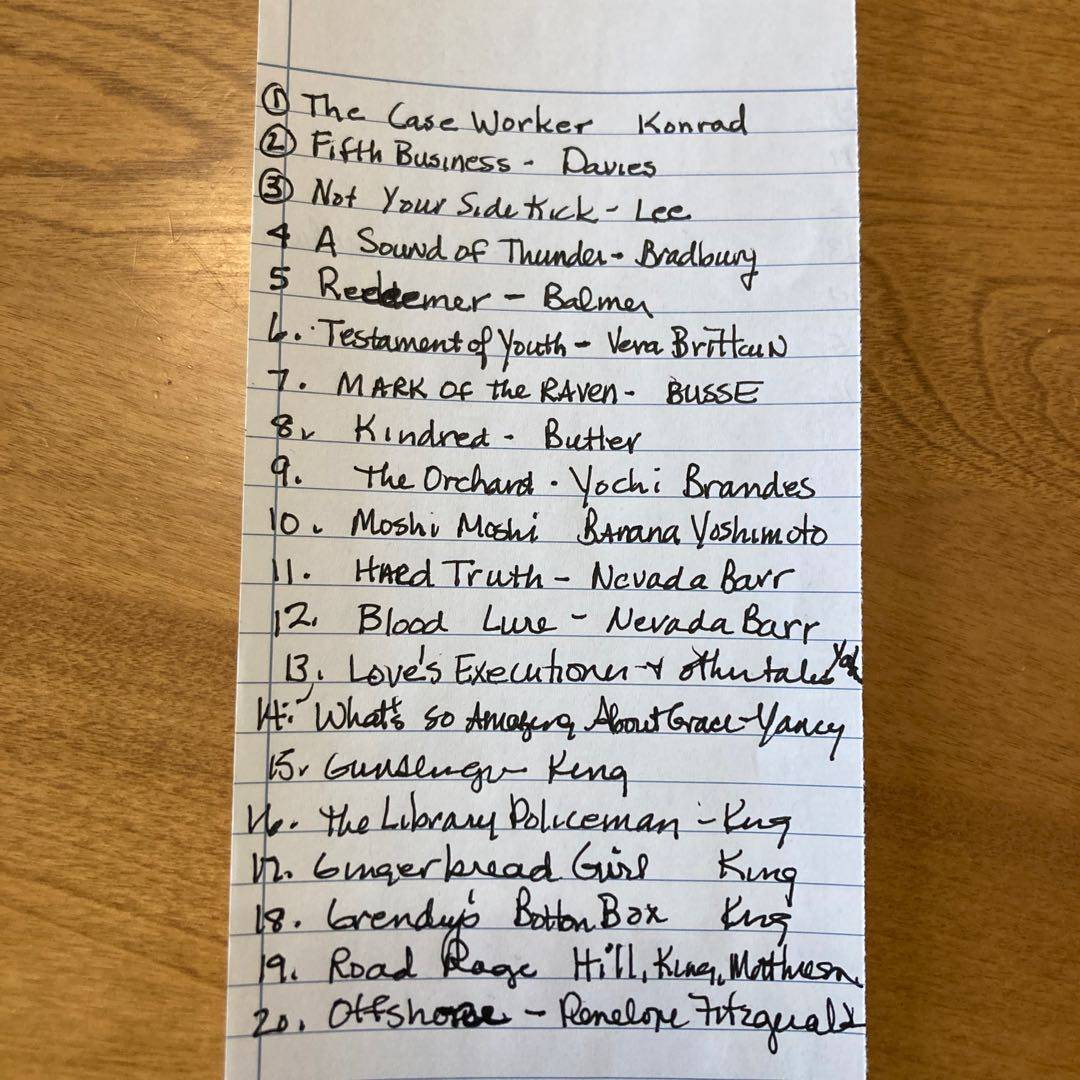 ① The Case Worker Konrad
② Fifth Business - Davies
③ Not Your Sidekick - Lee
4 A Sound of Thunder - Bradbury
5 Redeemer - Balmer
6. Testament of Youth - Vera Brittain
7. MARK OF the RAVen - BUSSE
8. Kindred - Butler
9. The Orchard - Yochi Brandes
10. Moshi Moshi Banana Yoshimoto
11. HARd Truth - Nevada Barr
12. Blood Lure - Nevada Barr
13. Love's Executioner & other tales Yal
14. What's so Amazing About Grace - Yancy
15. Gunslinger King
16. The Library Policeman - King
17. Gingerbread Girl King
18. Grendy's Button Box King
19. Road Rage Hill, King, Mathieson
20. Offshore - Penelope Fitzgerald